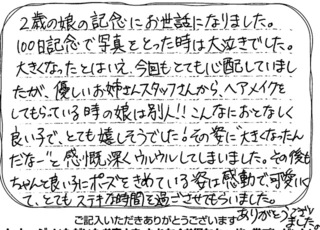 2歳の娘の記念にお世話になりました。
100日記念で写真をとった時は大泣きでした。
大きくなったとはいえ、今回もとても心配していまし
たが、優しいお姉さんスタッフさんから、ヘアメイクを
してもらっている時の娘は別人!!こんなにおとなしく
良い子で、とても嬉しそうでした!その姿に"大きくなったん
だなー"と感慨深くウルウルしてしまいました。その後も
ちゃんと良い子にポーズをきめている姿は感動で、可愛いく
て、とてもステキな時間を過ごさせてもらいました。
ありがとうござい
ました。
ご記入いただきありがとうございます